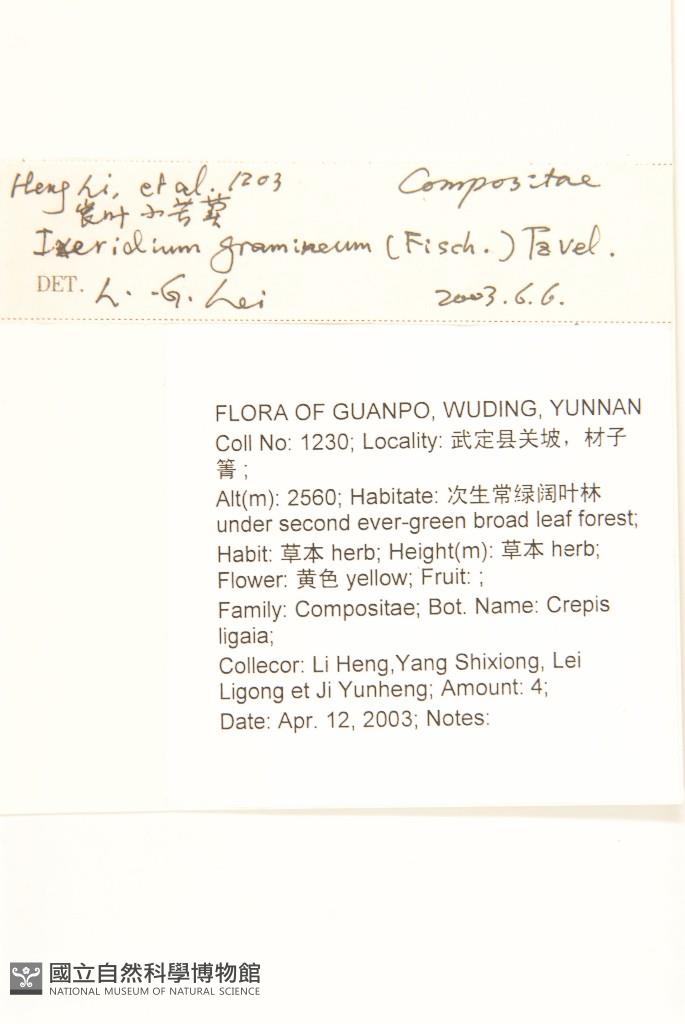 Heng Li, et al. 1203 Compositae
叶小苦荬
Ixeridium gramineum (Fisch.) Tzvel.
DET. L.-G. Lei 2003.6.6.
FLORA OF GUANPO, WUDING, YUNNAN
Coll No: 1230; Locality: 武定县关坡，材子
箐 ;
Alt(m): 2560; Habitate: 次生常绿阔叶林
under second ever-green broad leaf forest;
Habit: 草本 herb; Height(m): 草本 herb;
Flower: 黄色 yellow; Fruit: ;
Family: Compositae; Bot. Name: Crepis
ligaia;
Collecor: Li Heng,Yang Shixiong, Lei
Ligong et Ji Yunheng; Amount: 4;
Date: Apr. 12, 2003; Notes:
國立自然科學博物館
NATIONAL MUSEUM OF NATURAL SCIENCE